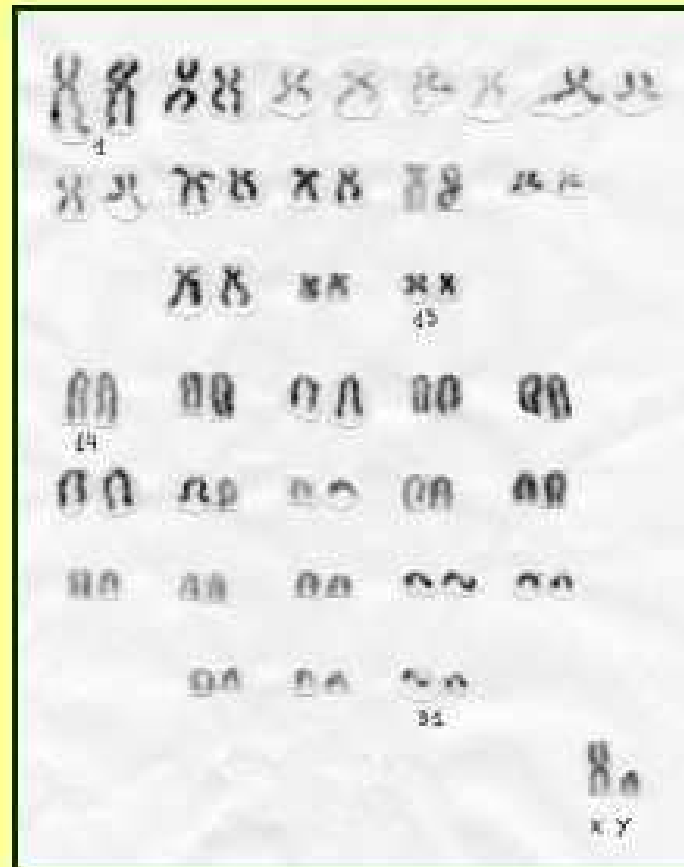 1
13
14
31
X Y